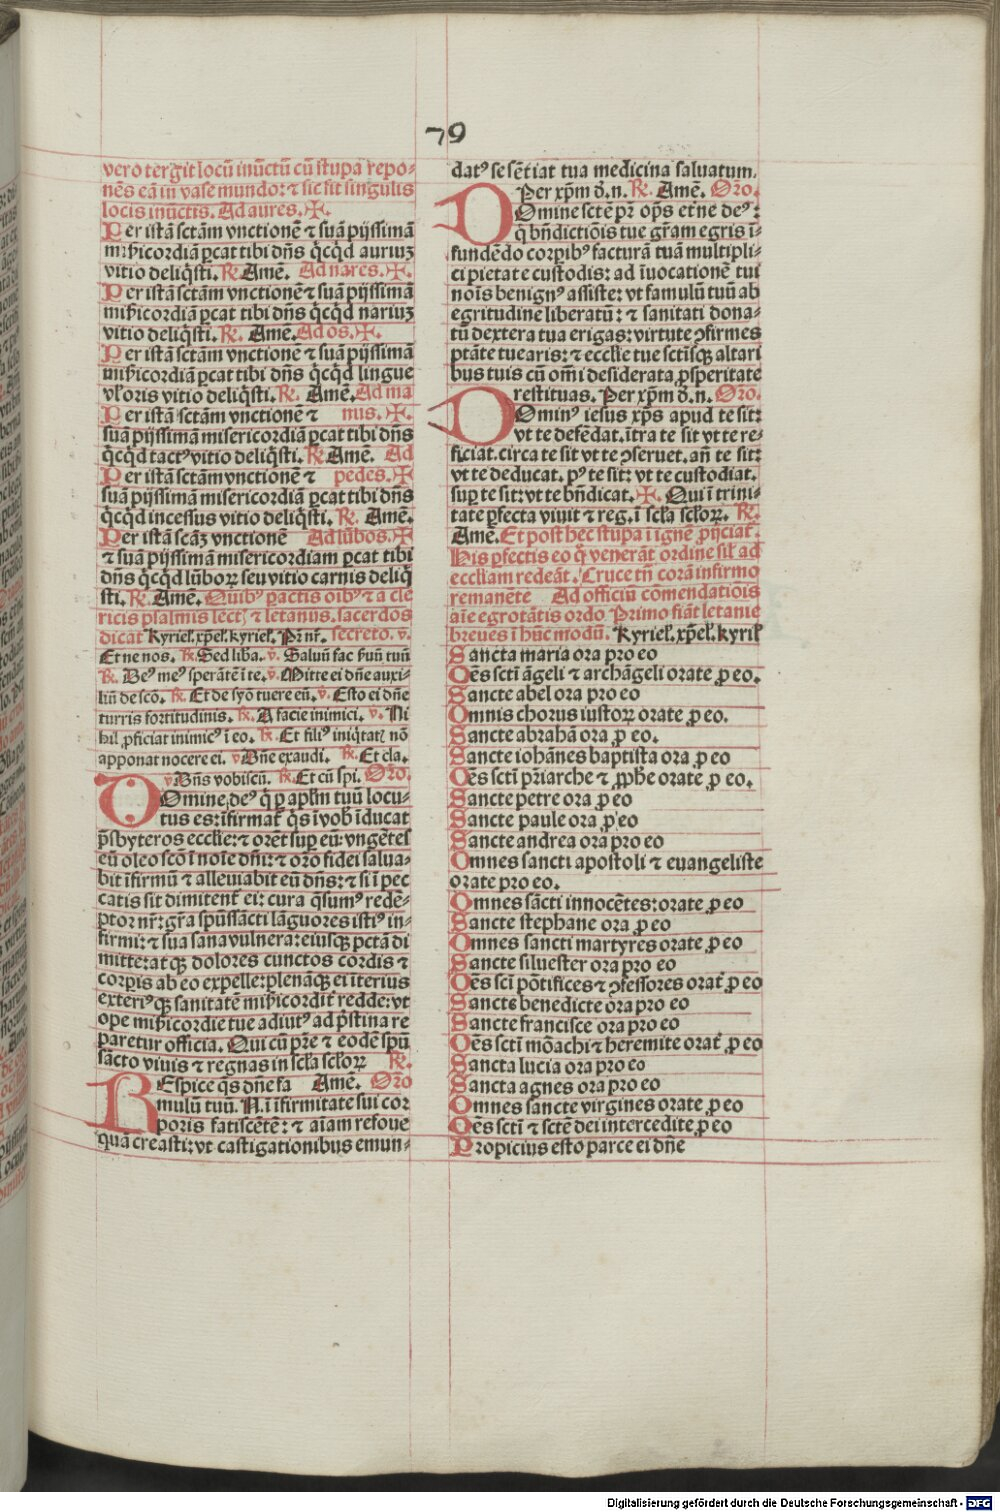 79
vero tergit locū inūctū cū stupa repo-
nēs eā in vase mundo: ⁊ sic fit singulis
locis inūctis. Ad aures. ✠.
Per istā sctām vnctionē ⁊ suā pijssimā
mi͞sicordiā ꝑcat tibi dn̄s qͥcqͥd auriuꝫ
vitio deliqͥsti. ℟. Amē. Ad nares. ✠.
Per istā sctām vnctionē ⁊ suā pijssimā
mi͞sicordiā ꝑcat tibi dn̄s qͥcqͥd nariuꝫ
vitio deliqͥsti. ℟. Amē. Ad os. ✠.
Per istā sctām vnctionē ⁊ suā pijssimā
mi͞sicordiā ꝑcat tibi dn̄s qͥcqͥd lingue
vl̓ oris vitio deliqͥsti. ℟. Amē. Ad ma
Per istā sctām vnctionē ⁊ nus. ✠.
suā pijssimā misericordiā ꝑcat tibi dn̄s
qͥcqͥd tactꝰ vitio deliqͥsti. ℟. Amē. Ad
Per istā sctām vnctionē ⁊ pedes. ✠
suā pijssimā misericordiā ꝑcat tibi dn̄s
qͥcqͥd incessus vitio deliqͥsti. ℟. Amē.
Per istā scāꝫ vnctionē Ad lūbos. ✠
⁊ suā pijssimā misericordiam ꝑcat tibi
dn̄s qͥcqͥd lūboꝝ seu vitio carnis deliqͥ
sti. ℟. Amē. Quibꝰ ꝑactis oībꝰ ⁊ a cle
ricis psalmis lect̓ ⁊ letanijs. sacerdos
dicat Kyriel̓. xp̄el̓. kyriel̓. Pr̄ nr̄. secreto. v.
Et ne nos. ℟. Sed liba. v. Saluū fac s̓uū tuū
℟. Deꝰ meꝰ sperātē ī te. v. Mitte ei dn̄e auxi-
liū de scō. ℟. Et de syō tuere eū. v. Esto ei dn̄e
turris fortitudinis. ℟. A facie inimici. v. Ni
hil ꝓficiat inimicꝰ ī eo. ℟. Et filiꝰ iniqͥtat̓ nō
apponat nocere ei. v. Dn̄e exaudi. ℟. Et cla.
v. Dn̄s vobiscū. ℟. Et cū spi. Oro.
Domine deꝰ qͥ ꝑ apl̄m tuū locu-
tus es: īfirmat̓ qͥs ī vob̓ īducat
p̄sbyteros eccl̄ie: ⁊ orēt suꝑ eū: vngētes
eū oleo scō ī noīe dn̄i: ⁊ orō fidei salua-
bit īfirmū ⁊ alleuiabit eū dn̄s: ⁊ si ī pec
catis sit dimitent̓ ei: cura qͥsumꝰ redē-
ptor nr̄: gr̄a spūssācti lāguores istiꝰ in-
firmi: ⁊ sua sana vulnera: eiusqꝫ pctā di
mitte: atqꝫ dolores cunctos cordis ⁊
corꝑis ab eo expelle: plenāqꝫ ei īterius
exteriꝰqꝫ sanitatē mi͞sicordit̓ redde: vt
ope mi͞sicordie tue adiutꝰ ad p̄stina re
paretur officia. Qui cū pr̄e ⁊ eodē spū
sācto viuis ⁊ regnas in scl̄a scl̄oꝝ ℟.
Respice qͥs dn̄e fa Amē. Oro
mulū tuū. N. ī īfirmitate sui cor
poris fatiscētē: ⁊ aīam refoue
quā creasti: vt castigationibus emun-
datꝰ se sētiat tua medicina saluatum.
Per xp̄m d̄. n. ℟. Amē. Oro.
Domine sctē pr̄ op̄s et̄ne deꝰ:
qͥ bn̄dictiōis tue gr̄am egris ī-
fundēdo corꝑibꝰ facturā tuā multipli-
ci pietate custodis: ad īuocationē tui
noīs benignꝰ assiste: vt famulū tuū ab
egritudine liberatū: ⁊ sanitati dona-
tū dextera tua erigas: virtute ꝯfirmes
ptāte tuearis: ⁊ eccl̄ie tue sctisqꝫ altari
bus tuis cū om̄i desiderata ꝓsperitate
restituas. Per xp̄m d̄. n. Oro.
Dominꝰ iesus xp̄s apud te sit:
vt te defēdat. ītra te sit vt te re-
ficiat. circa te sit vt te ꝯseruet. an̄ te sit:
vt te deducat. pꝰ te sit: vt te custodiat.
suꝑ te sit: vt te bn̄dicat. ✠. Qui ī trini-
tate ꝑfecta viuit ⁊ reg. ī scl̄a scl̄oꝝ. ℟.
Amē. Et post hec stupa ī ignē ꝓijciat̓.
His ꝑfectis eo qͦ venerāt ordine sil̓ ad
eccl̄iam redeāt. Cruce tn̄ corā infirmo
remanēte Ad officiū comendatiōis
aīe egrotātis ordo Primo fiāt letanie
breues ī hūc modū. Kyriel̓. xp̄el̓. kyril̓
Sancta maria ora pro eo
Oēs sctī āgeli ⁊ archāgeli orate ꝓ eo.
Sancte abel ora pro eo
Omnis chorus iustoꝝ orate ꝓ eo.
Sancte abrahā ora ꝓ eo.
Sancte iohānes baptista ora ꝓ eo
Oēs sctī pr̄iarche ⁊ ꝓphe orate ꝓ eo.
Sancte petre ora ꝓ eo
Sancte paule ora ꝓ eo
Sancte andrea ora pro eo
Omnes sancti apostoli ⁊ euangeliste
orate pro eo.
Omnes sācti innocētes: orate ꝓ eo
Sancte stephane ora ꝓ eo
Omnes sancti martyres orate ꝓ eo
Sancte siluester ora pro eo
Oēs scī pōtifices ⁊ ꝯfessores orat̓ ꝓ eo
Sancte benedicte ora pro eo
Sancte francisce ora pro eo
Oēs sctī mōachi ⁊ heremite orat̓ ꝓ eo
Sancta lucia ora pro eo
Sancta agnes ora pro eo
Omnes sancte virgines orate ꝓ eo
Oēs sctī ⁊ sctē dei intercedite ꝓ eo
Propicius esto parce ei dn̄e
Digitalisierung gefördert durch die Deutsche Forschungsgemeinschaft - DFG